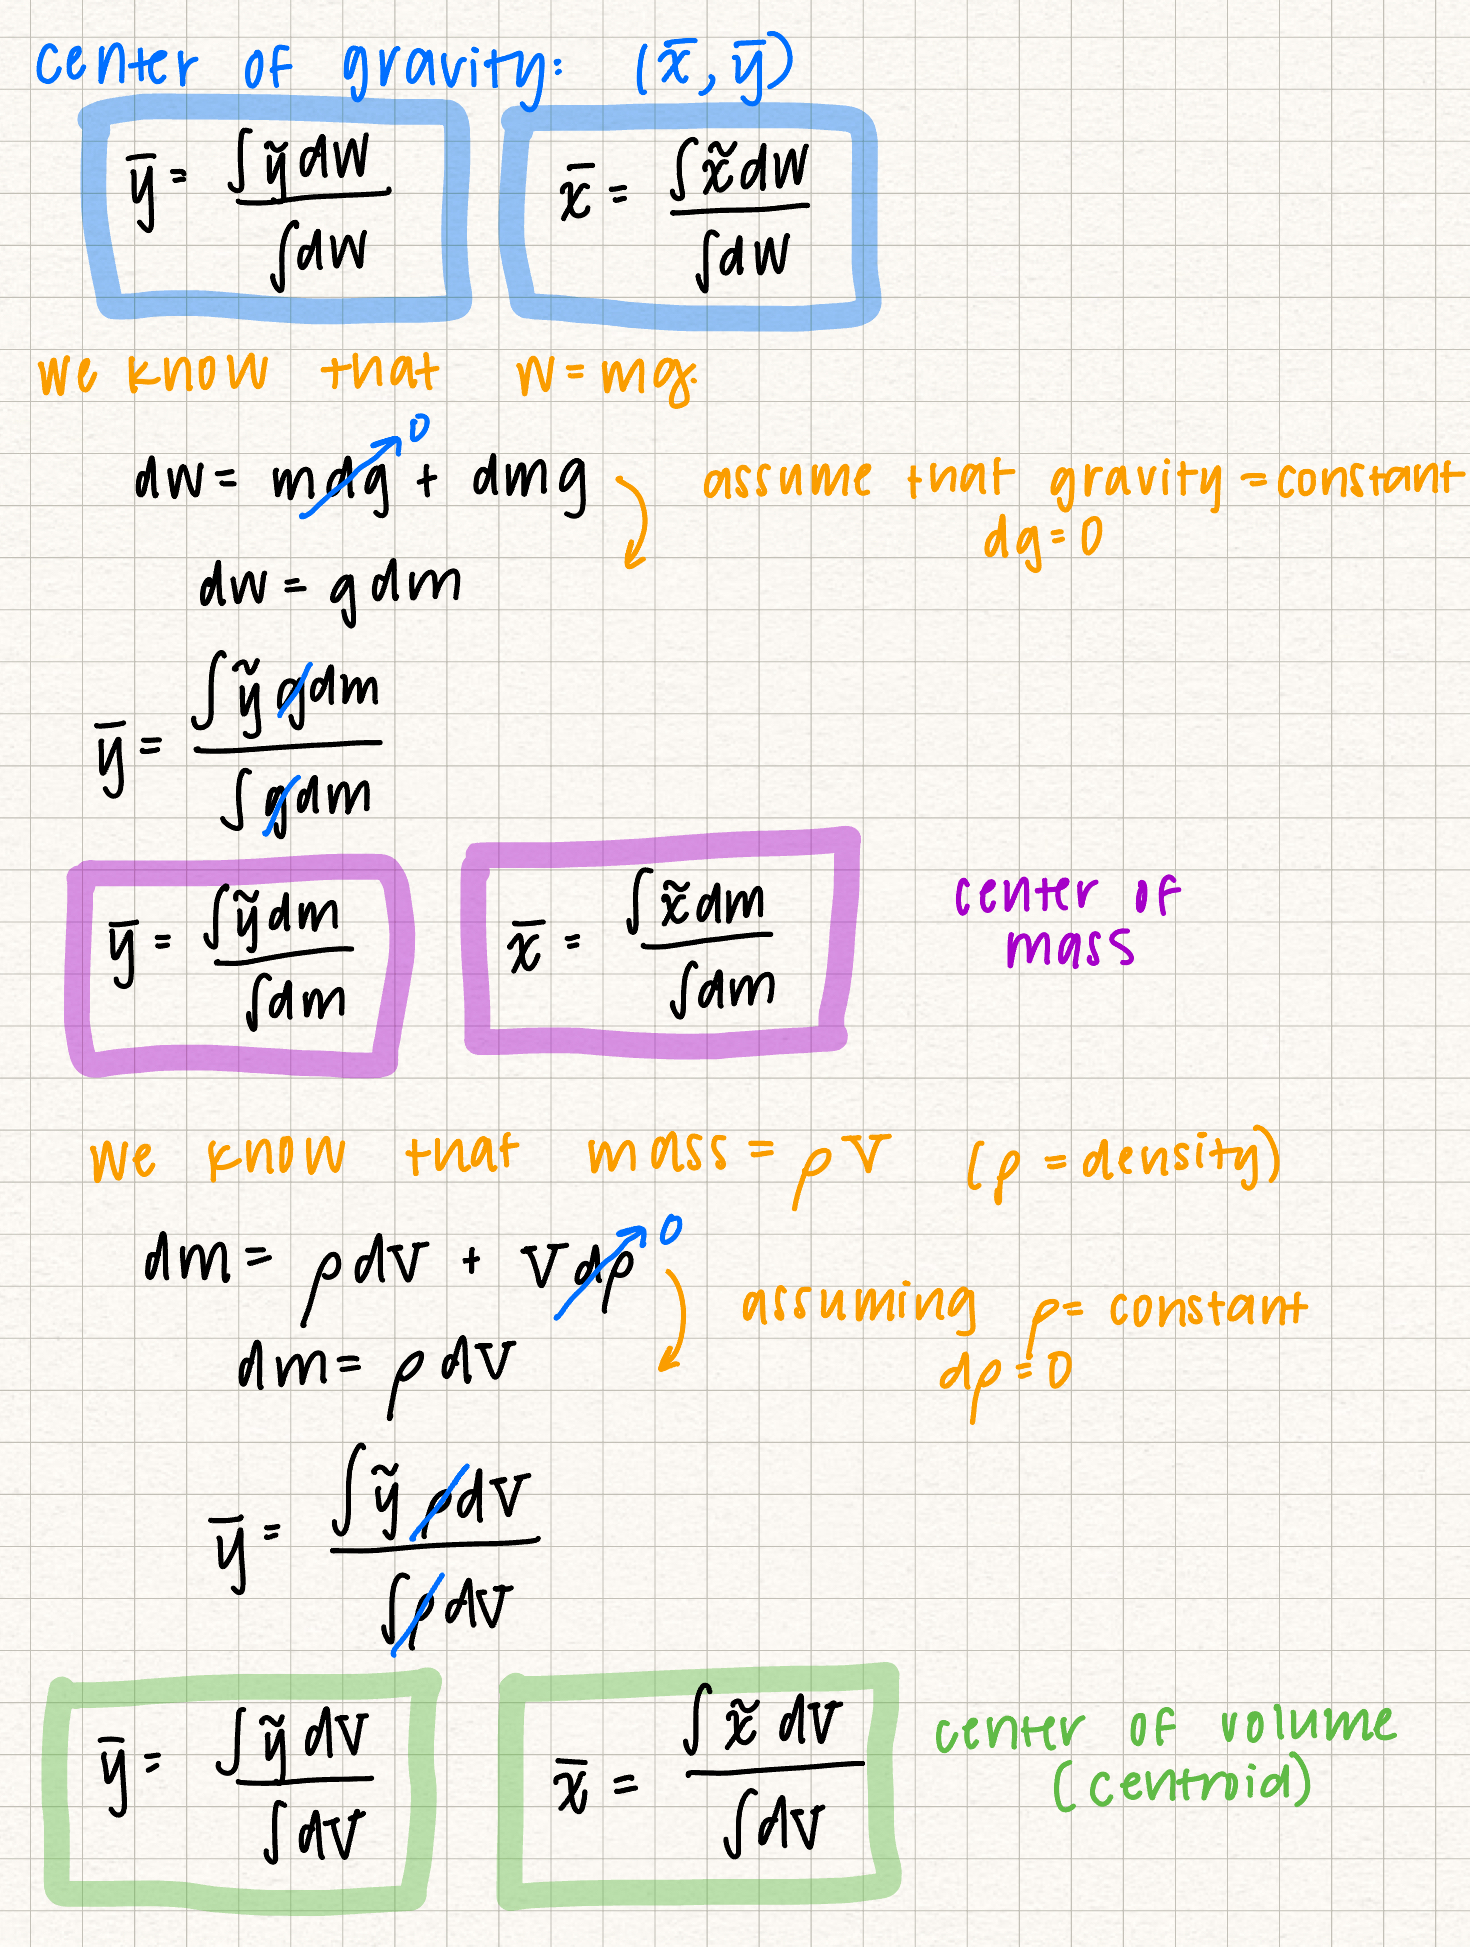 center of gravity: (x̄, ȳ)
ȳ = ∫ỹ dW / ∫dW    x̄ = ∫x̃ dW / ∫dW
we know that W = mg.
dW = mdg→0 + dmg    assume that gravity = constant
dg = 0
dW = g dm
ȳ = ∫ỹ g dm / ∫g dm
ȳ = ∫ỹ dm / ∫dm    x̄ = ∫x̃ dm / ∫dm    center of
mass
we know that mass = ρV    (ρ = density)
dm = ρdV + Vdρ→0    assuming ρ = constant
dm = ρ dV    dρ = 0
ȳ = ∫ỹ ρdV / ∫ρdV
ȳ = ∫ỹ dV / ∫dV    x̄ = ∫x̃ dV / ∫dV    center of volume
(centroid)